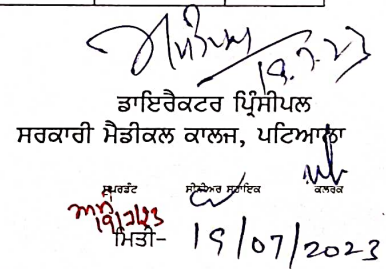 19.7.23
ਡਾਇਰੈਕਟਰ ਪ੍ਰਿੰਸੀਪਲ
ਸਰਕਾਰੀ ਮੈਡੀਕਲ ਕਾਲਜ, ਪਟਿਆਲਾ
ਸੁਪਰਡੰਟ ਸੀਨੀਅਰ ਸਹਾਇਕ ਕਲਰਕ
19/7/23
ਮਿਤੀ- 19/07/2023